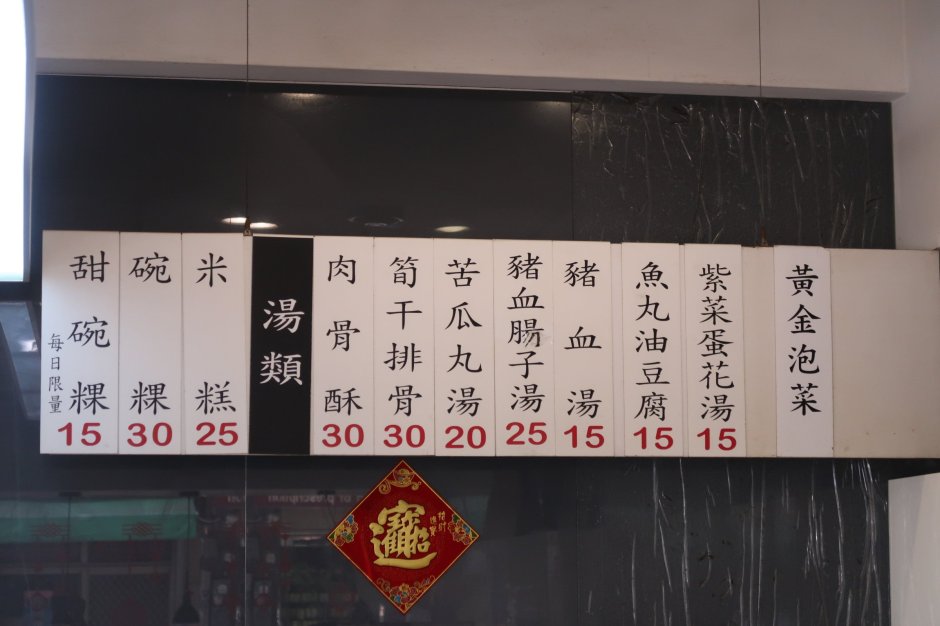 甜碗粿
每日限量
15
碗粿
30
米糕
25
湯類
肉骨酥
30
筍干排骨
30
苦瓜丸湯
20
豬血腸子湯
25
豬血湯
15
魚丸油豆腐
15
紫菜蛋花湯
15
黃金泡菜
招財進寶
招財
進寶